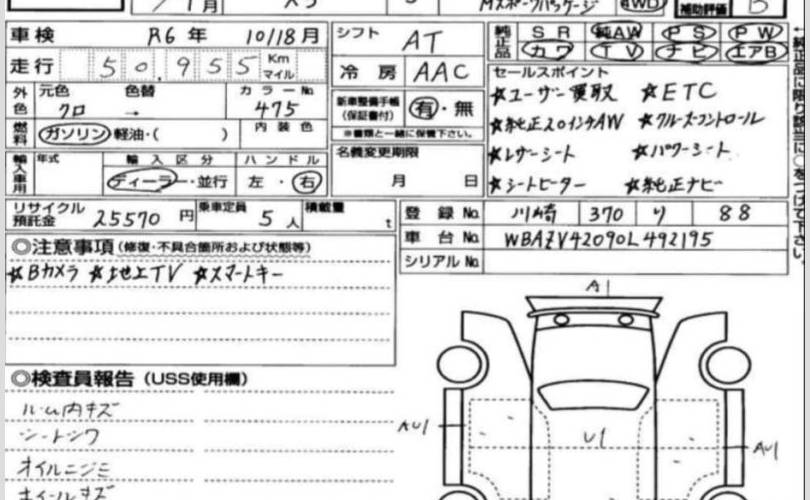 Mスポーツパッケージ 4WD 補助評価 B
車検 R6年 10/18月 シフト AT 純正品 SR 純AW PS PW
カワ TV ナビ エアB
走行 50,955 Km マイル 冷房 AAC
セールスポイント
外色 元色 色替 カラーNo. 新車整備手帳(保証書付) 有・無
クロ → 475
☆ユーザー買取 ☆ETC
☆純正20インチAW ☆クルーズコントロール
燃料 ガソリン・軽油・( ) 内装色 ※書類と一緒に保管下さい。
☆レザーシート ☆パワーシート
輸入車用 年式 輸入区分 ハンドル 名義変更期限
ディーラー・並行 左・右 月 日
☆シートヒーター ☆純正ナビ
リサイクル預託金 25570円 乗車定員 5人 積載量 t
登録No. 川崎 370 り 88
車台No. WBAZV42090L492195
シリアルNo.
◎注意事項(修復・不具合箇所および状態等)
☆Bカメラ ☆地上TV ☆スマートキー
◎検査員報告(USS使用欄)
ルーム内キズ
シートシワ
オイルニジミ
ホイールキズ
A1
AU1 U1 AU1